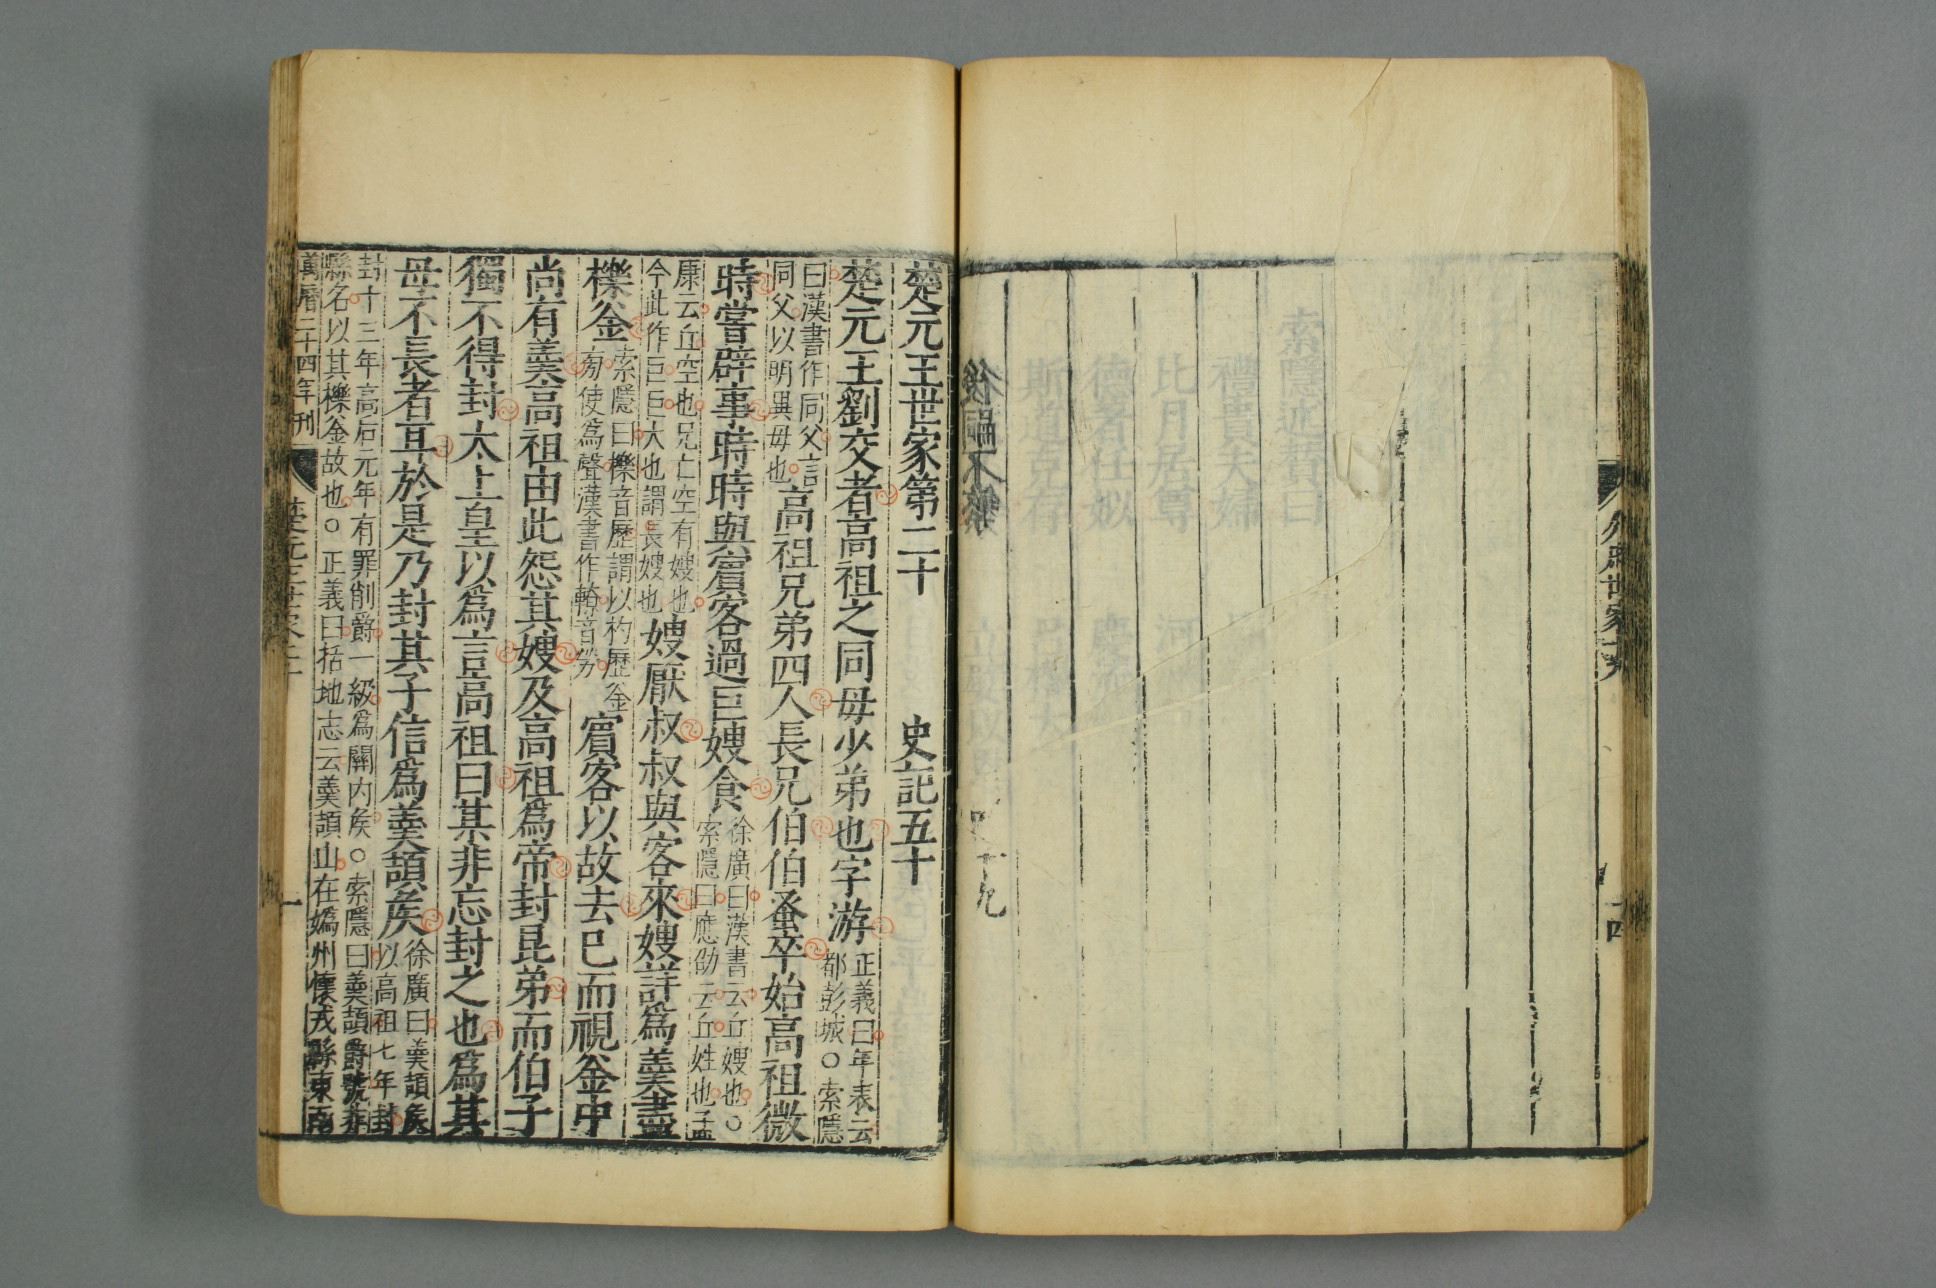 外戚世家十九
十四
後嗣不繁
楚元王世家第二十 史記五十
楚元王劉交者高祖之同母少弟也字游
正義曰年表云
都彭城○索隱
曰漢書作同父言
同父以明異母也
高祖兄弟四人長兄伯伯蚤卒始高祖微
時嘗辟事時時與賓客過巨嫂食
徐廣曰漢書云丘嫂也○
索隱曰應劭云丘姓也孟
康云丘空也兄亡空有嫂也
今此作巨巨大也謂長嫂也
嫂厭叔叔與客來嫂詳爲羹盡
櫟釜
索隱曰櫟音歷謂以杓歷釜
旁使爲聲漢書作轑音勞
賓客以故去已而視釜中
尚有羹高祖由此怨其嫂及高祖爲帝封昆弟而伯子
獨不得封太上皇以爲言高祖曰某非忘封之也爲其
母不長者耳於是乃封其子信爲羹頡矦
徐廣曰羹頡矦
以高祖七年封
封十三年高后元年有罪削爵一級爲關內矦○索隱曰羹頡爵號非
縣名以其櫟釜故也○正義曰括地志云羹頡山在嬀州懷戎縣東南
萬曆二十四年刊
楚元王世家二十
一